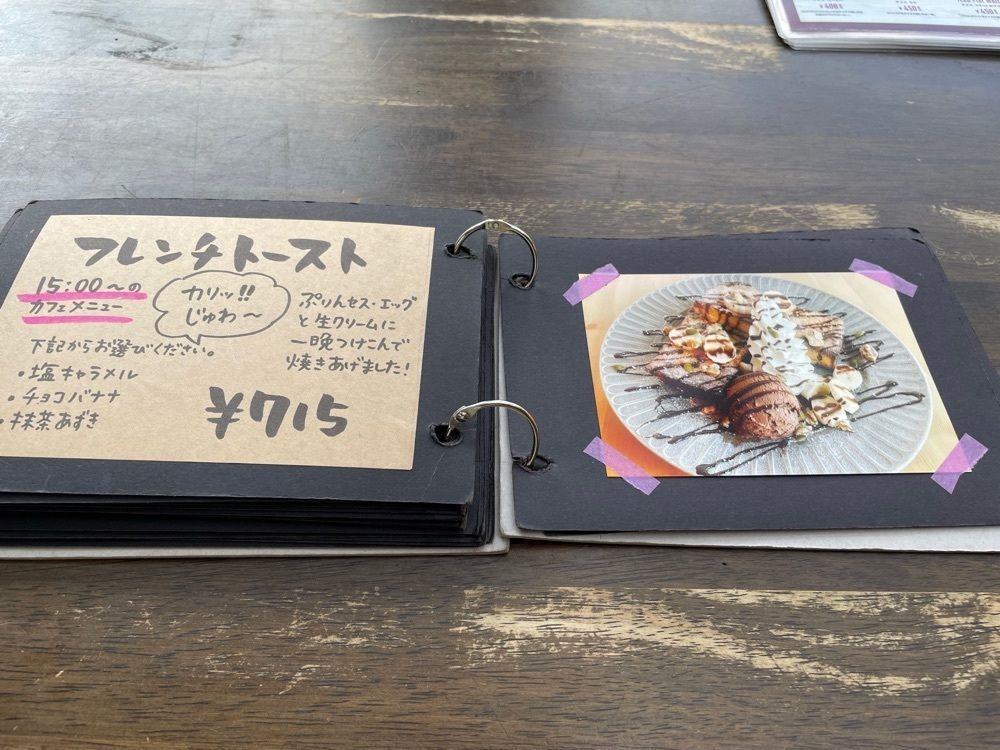 フレンチトースト
15:00〜の
カフェメニュー
カリッ!!
じゅわ〜
ぷりんセス・エッグ
と生クリームに
一晩つけこんで
焼きあげました!
下記からお選びください。
・塩キャラメル
・チョコバナナ
・抹茶あずき
¥715
¥450